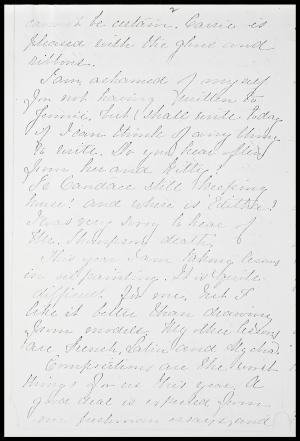 2
cannot be certain. Carrie is
pleased with the glue and
ribbons.
I am ashamed of myself
for not having written to
Jennie. but I shall write today
if I can think of any thing
to write. Do you hear often
from her and Kitty?
Is Candace still keeping
house? and where is Edith?
I was very sorry to hear of
Mr. Thompson death.
This year I am taking lessons
in oil painting. It is quite
difficult for me, but I
like it better than drawing
from models. My other lessons
are French, Latin and
Compositions are the worst
things for us this year. A
good deal is expected from
our freshman essays, and